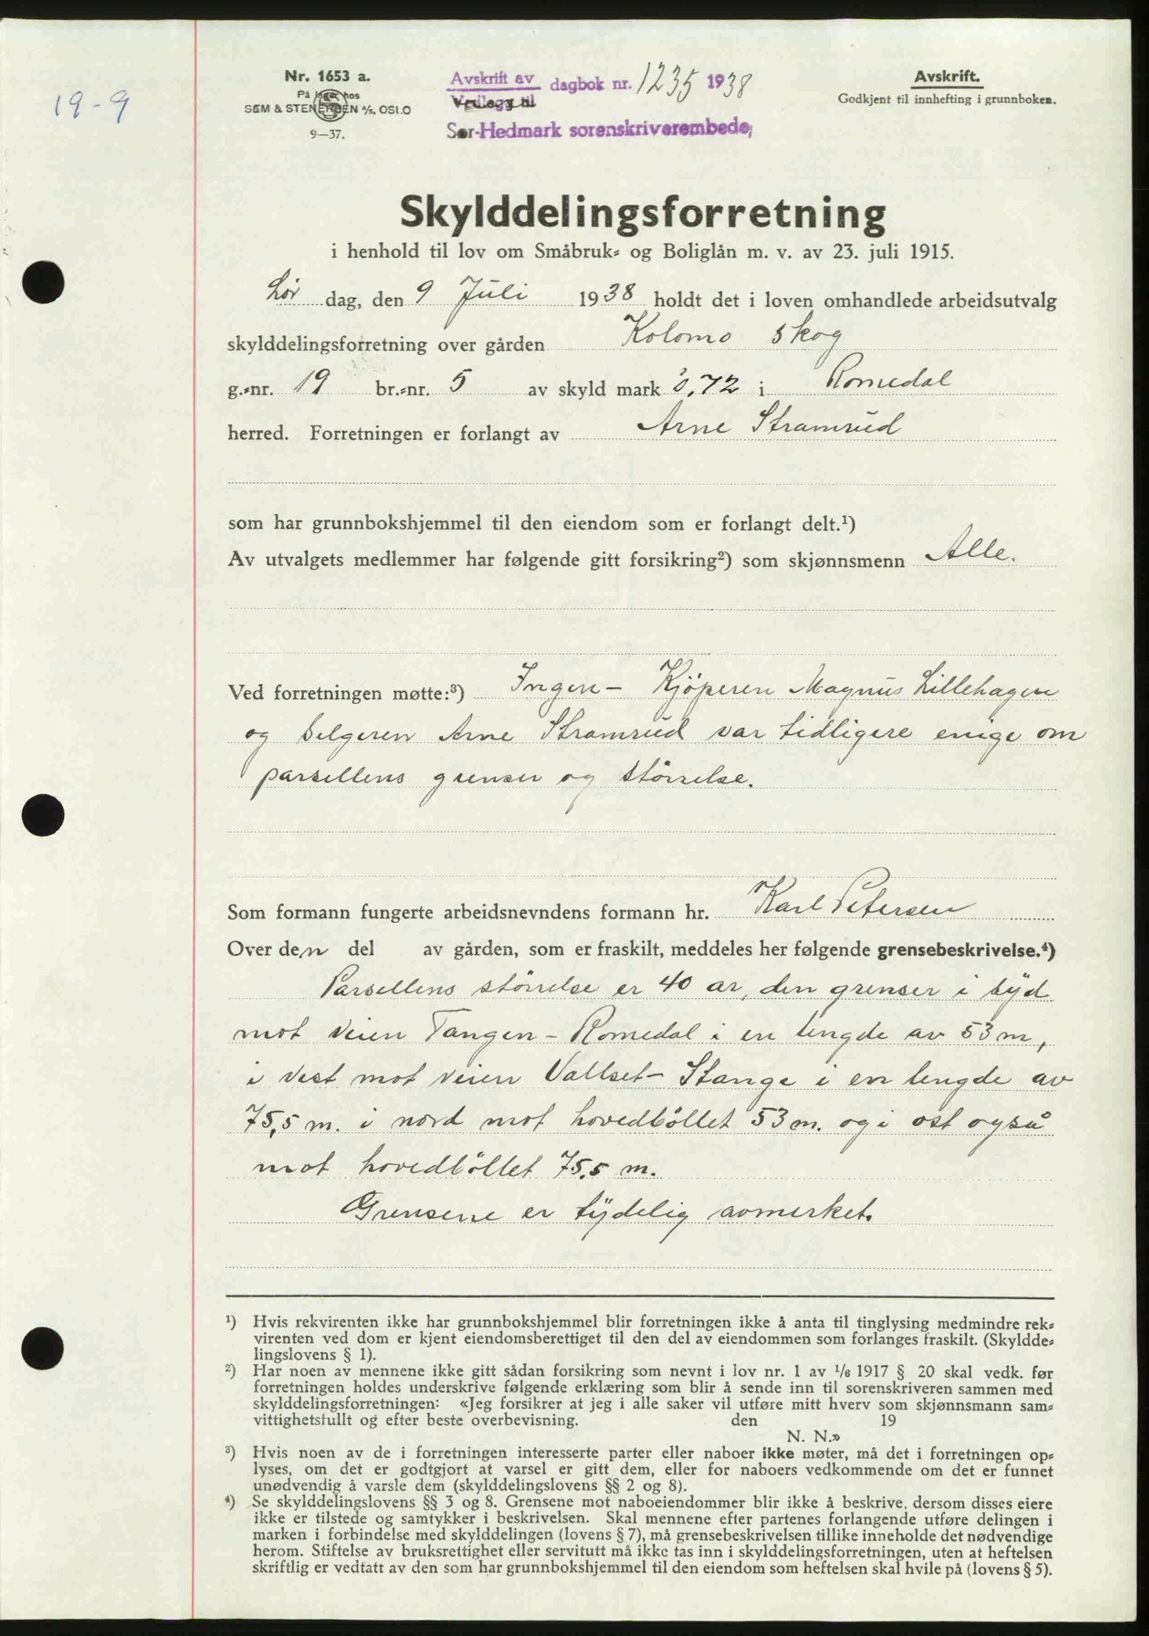 19-9
Nr. 1653 a.
På lager hos
SEM & STENERSEN A/S, OSLO
9—37.
Avskrift av
Vedlegg til
dagbok nr. 1235 1938
Sør-Hedmark sorenskriverembede,
Avskrift.
Godkjent til innhefting i grunnboken.
Skylddelingsforretning
i henhold til lov om Småbruk- og Boliglån m. v. av 23. juli 1915.
Lør dag, den 9 Juli 1938 holdt det i loven omhandlede arbeidsutvalg
skylddelingsforretning over gården Kolomo skog
g.-nr. 19 br.-nr. 5 av skyld mark 0,72 i Romedal
herred. Forretningen er forlangt av Arne Stramrud
som har grunnbokshjemmel til den eiendom som er forlangt delt.¹)
Av utvalgets medlemmer har følgende gitt forsikring²) som skjønnsmenn Alle.
Ved forretningen møtte:³) Ingen – Kjöperen Magnus Lillehagen
og selgeren Arne Stramrud var tidligere enige om
parsellens grenser og störrelse.
Som formann fungerte arbeidsnevndens formann hr. Karl Petersen
Over den del av gården, som er fraskilt, meddeles her følgende grensebeskrivelse.⁴)
Parsellens störrelse er 40 ar, den grenser i syd
mot veien Tangen – Romedal i en lengde av 53 m,
i vest mot veien Vallset – Stange i en lengde av
75,5 m. i nord mot hovedböllet 53 m. og i öst også
mot hovedböllet 75,5 m.
Grensene er tydelig avmerket.
¹) Hvis rekvirenten ikke har grunnbokshjemmel blir forretningen ikke å anta til tinglysing medmindre rek-
virenten ved dom er kjent eiendomsberettiget til den del av eiendommen som forlanges fraskilt. (Skyldde-
lingslovens § 1).
²) Har noen av mennene ikke gitt sådan forsikring som nevnt i lov nr. 1 av 1/6 1917 § 20 skal vedk. før
forretningen holdes underskrive følgende erklæring som blir å sende inn til sorenskriveren sammen med
skylddelingsforretningen: «Jeg forsikrer at jeg i alle saker vil utføre mitt hverv som skjønnsmann sam-
vittighetsfullt og efter beste overbevisning. den 19
N. N.»
³) Hvis noen av de i forretningen interesserte parter eller naboer ikke møter, må det i forretningen op-
lyses, om det er godtgjort at varsel er gitt dem, eller for naboers vedkommende om det er funnet
unødvendig å varsle dem (skylddelingslovens §§ 2 og 8).
⁴) Se skylddelingslovens §§ 3 og 8. Grensene mot naboeiendommer blir ikke å beskrive, dersom disses eiere
ikke er tilstede og samtykker i beskrivelsen. Skal mennene efter partenes forlangende utføre delingen i
marken i forbindelse med skylddelingen (lovens § 7), må grensebeskrivelsen tillike inneholde det nødvendige
herom. Stiftelse av bruksrettighet eller servitutt må ikke tas inn i skylddelingsforretningen, uten at heftelsen
skriftlig er vedtatt av den som har grunnbokshjemmel til den eiendom som heftelsen skal hvile på (lovens § 5).